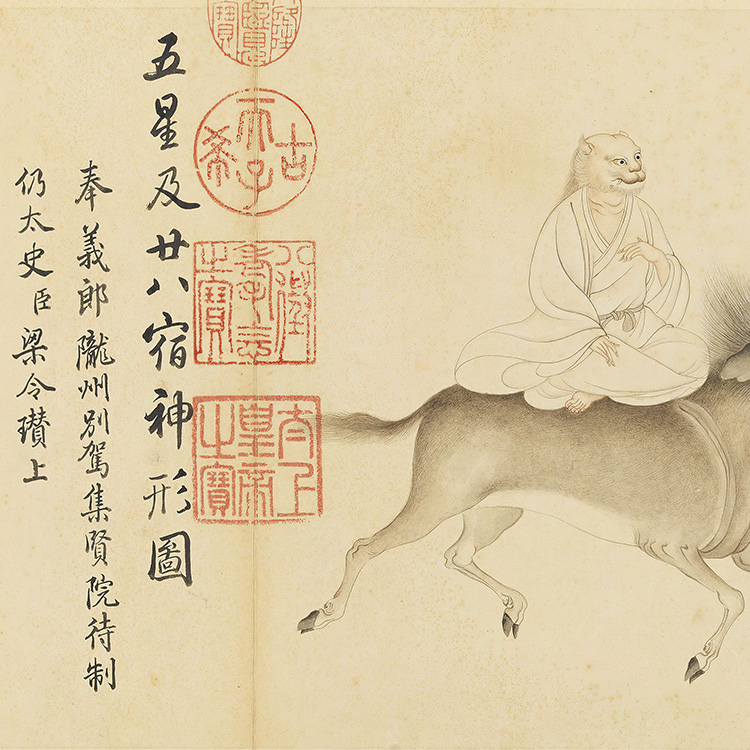 古希天子
八徵耄念之寶
太上皇帝之寶
五星及廿八宿神形圖
奉義郎隴州別駕集賢院待制
仍太史臣梁令瓚上